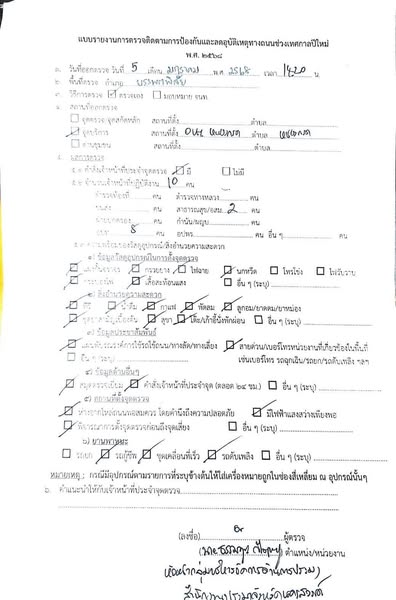 แบบรายงานการตรวจติดตามการป้องกันและลดอุบัติเหตุทางถนนช่วงเทศกาลปีใหม่
พ.ศ. ๒๕๖๘
๑. วันที่ออกตรวจ วันที่ 5 เดือน มกราคม พ.ศ. 2568 เวลา 1420 น.
๒. พื้นที่ตรวจ อำเภอ บรรพตพิสัย
๓. วิธีการตรวจ ตรวจเอง มอบหมาย จนท.
๔. สถานที่ออกตรวจ
จุดตรวจ/จุดสกัดหลัก สถานที่ตั้ง ตำบล
จุดบริการ สถานที่ตั้ง อบต. ตำบล
ด่านชุมชน สถานที่ตั้ง ตำบล
๕. ผลการตรวจ
๕.๑ เจ้าหน้าที่ประจำจุดตรวจ มี ไม่มี
๕.๒ จำนวนเจ้าหน้าที่ปฏิบัติงาน 10 คน
ตำรวจท้องที่ คน ตำรวจทางหลวง คน
ขนส่ง คน สาธารณสุข/อสม. 2 คน
ฝ่ายปกครอง คน กำนัน/ผญบ. คน
อบต. 8 คน อปพร. คน อื่น ๆ คน
๕.๓ ความพร้อมของวัสดุอุปกรณ์/สิ่งอำนวยความสะดวก
๑) ข้อมูลวัสดุอุปกรณ์ในการตั้งจุดตรวจ
แผงกั้นจราจร กรวยยาง ไฟฉาย นกหวีด โทรโข่ง ไฟวับวาบ
กระบองไฟ เสื้อสะท้อนแสง อื่น ๆ (ระบุ)
๒) สิ่งอำนวยความสะดวก
ทีวี น้ำดื่ม กาแฟ พัดลม ลูกอม/ยาดมยา/หม่อง
ชุดยาสามัญเบื้องต้น สุขา โต๊ะ/เก้าอี้นั่งพักผ่อน อื่น ๆ (ระบุ)
๓) ข้อมูลประชาสัมพันธ์
แผ่นพับรณรงค์การใช้รถใช้ถนน/ทางลัด/ทางเลี่ยง สายด่วน/เบอร์โทรหน่วยงานที่เกี่ยวข้องในพื้นที่
อื่น ๆ (ระบุ) เช่นเบอร์โทร รถฉุกเฉิน/รถยก/รถดับเพลิง ฯลฯ
๔) ข้อมูลด้านอื่นๆ
สมุดตรวจเยี่ยม คำสั่งเจ้าหน้าที่ประจำจุด (ตลอด ๒๔ ชม.) อื่น ๆ (ระบุ)
๕) สถานที่ตั้งจุดตรวจ
ห่างจากไหล่ถนนพอสมควร โดยคำนึงถึงความปลอดภัย มีไฟฟ้าแสงสว่างเพียงพอ
พิจารณาการตั้งจุดตรวจก่อนถึงจุดเสี่ยง อื่น ๆ (ระบุ)
๖) ยานพาหนะ
รถยก รถกู้ชีพ ชุดเคลื่อนที่เร็ว รถดับเพลิง อื่น ๆ (ระบุ)
หมายเหตุ : กรณีมีอุปกรณ์ตามรายการที่ระบุข้างต้นให้ใส่เครื่องหมายถูกในช่องสี่เหลี่ยม ณ อุปกรณ์นั้นๆ
๖. คำแนะนำให้กับเจ้าหน้าที่ประจำจุดตรวจ
(ลงชื่อ) ผู้ตรวจ
ตำแหน่ง/หน่วยงาน